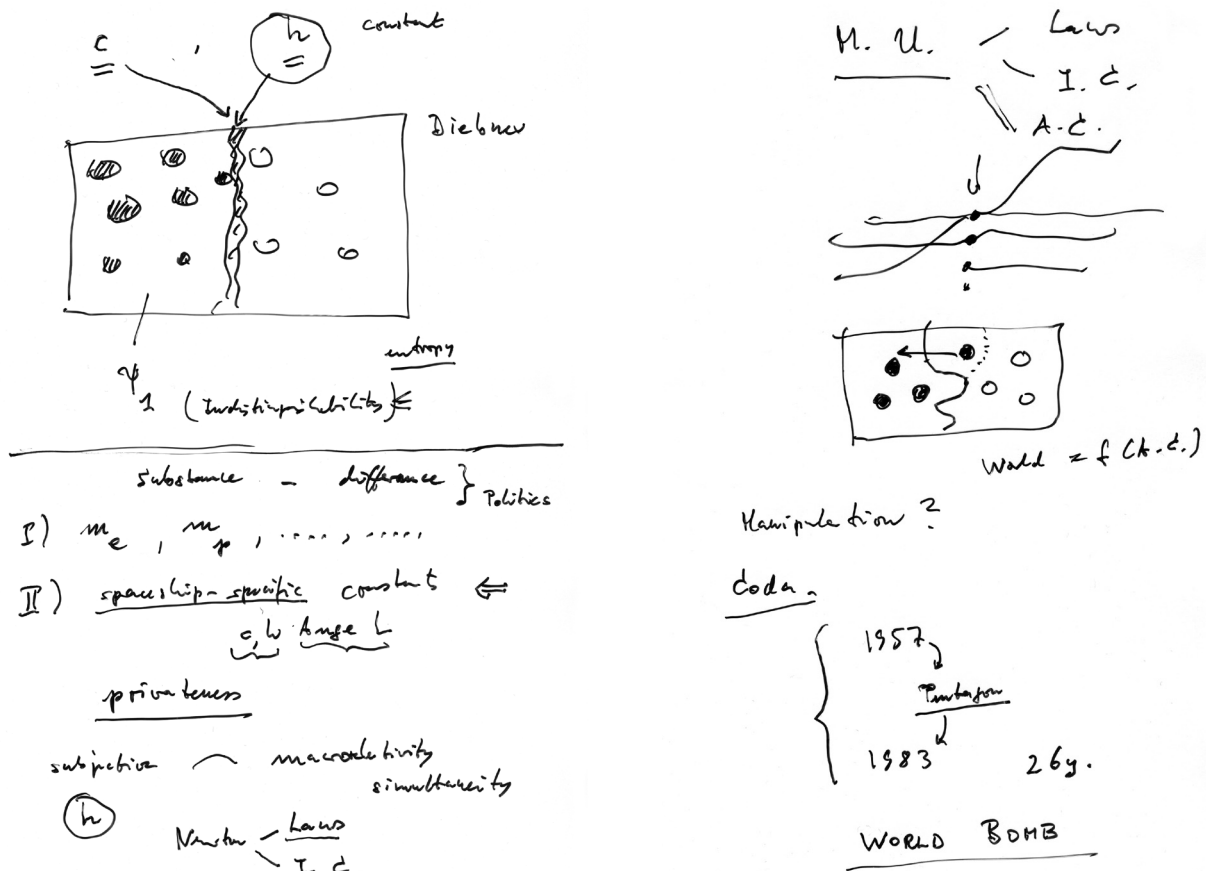 c , h constant
Diebner
ψ
entropy
1 (Indistinguishability) ⇐
substance – difference } Politics
I) m_e , m_p , ...., .....,
II) spaceship-specific constants ⇐
c, h
privateness
subjective macrorelativity
simultaneity
h
Newton Laws
I. C.
M. U. Laws
I. C.
A.C.
World = f (A.C.)
Manipulation ?
Coda.
1957
Pentagon
1983 26y.
WORLD BOMB